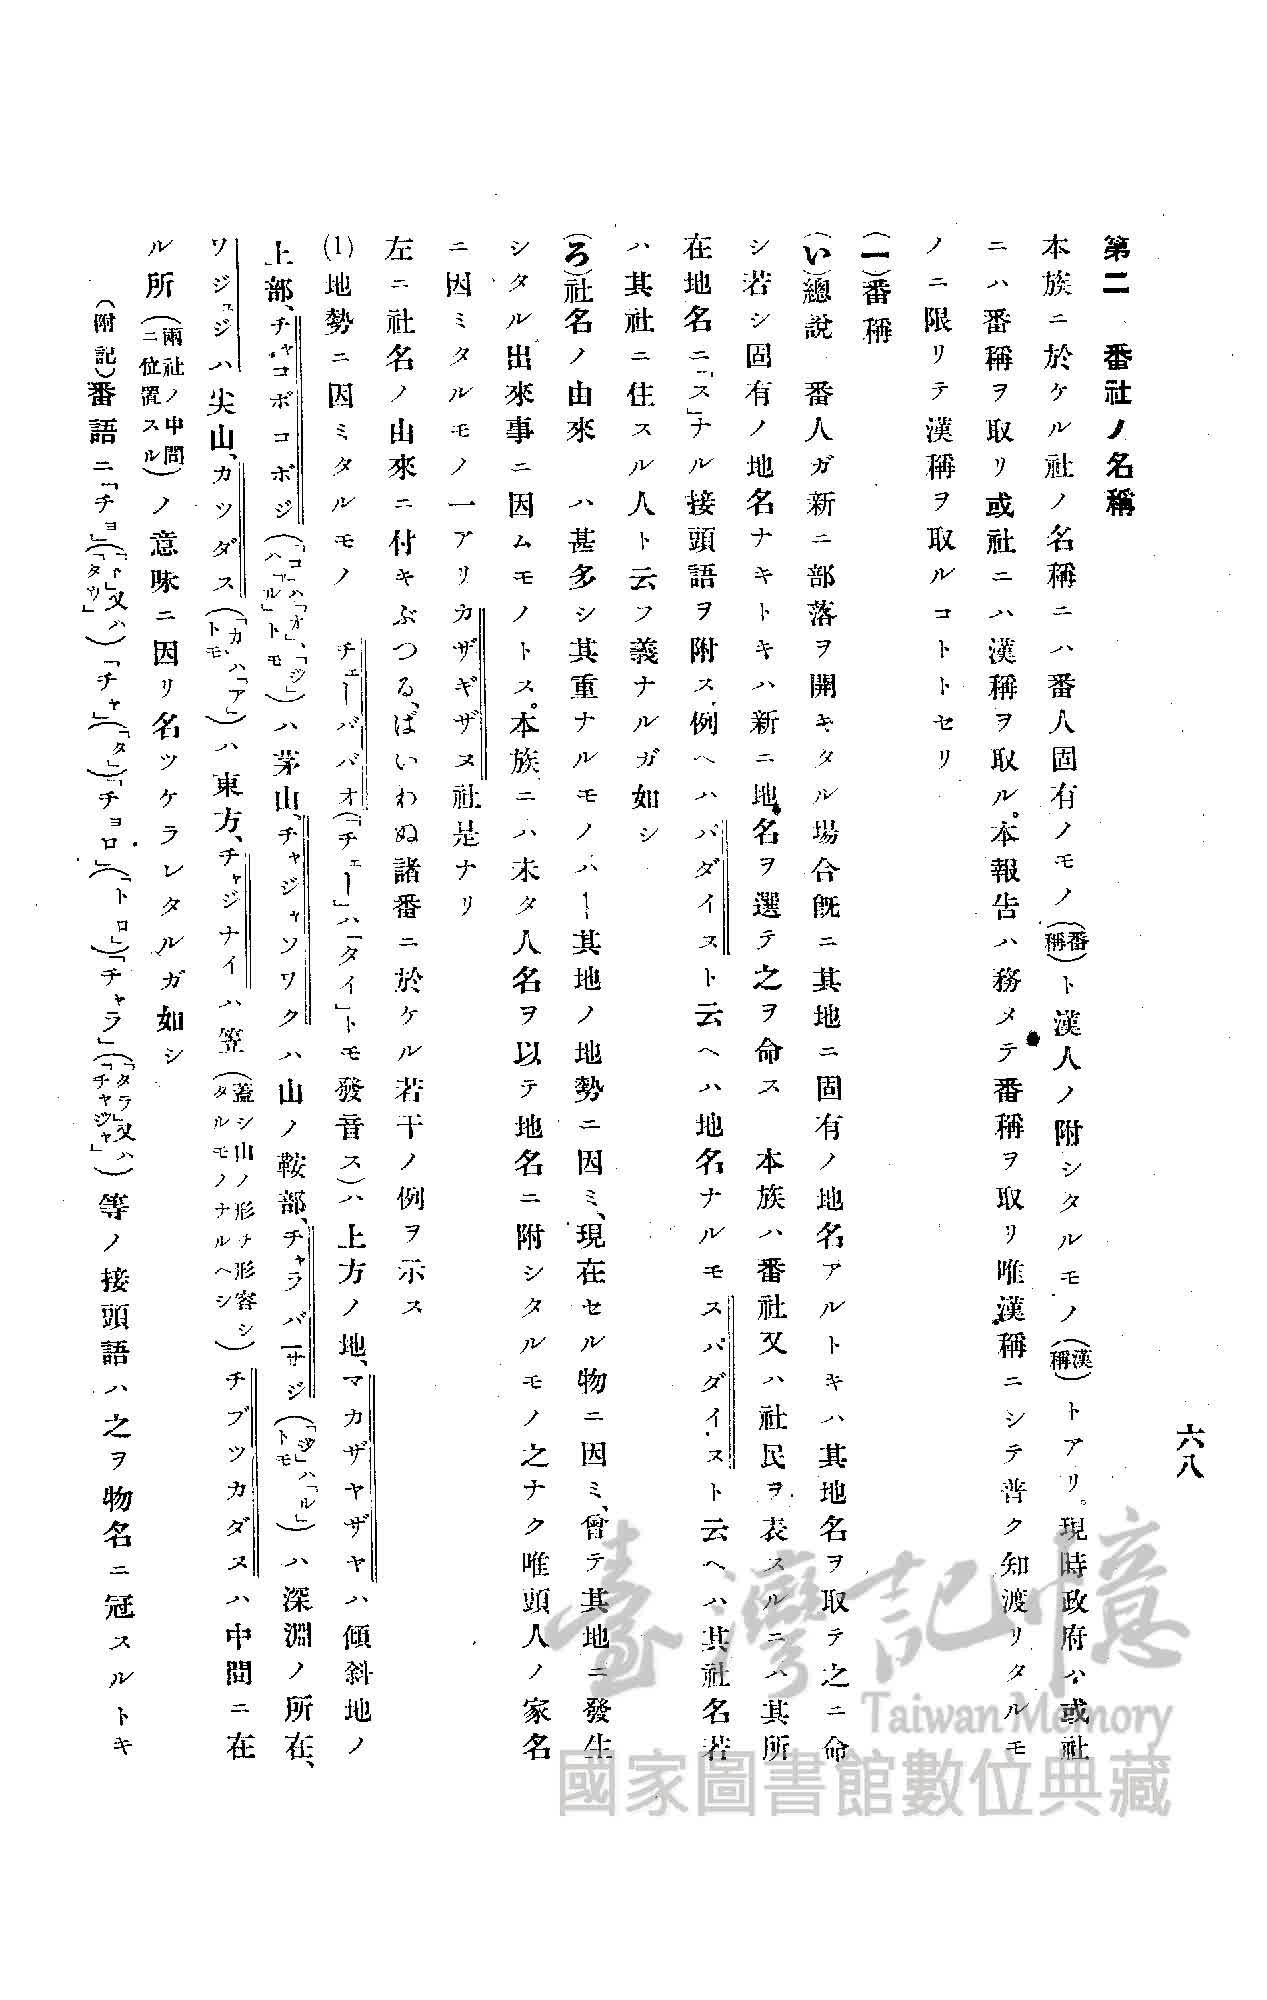 六八
第二　番社ノ名稱
本族ニ於ケル社ノ名稱ニハ番人固有ノモノ(番稱)ト漢人ノ附シタルモノ(漢稱)トアリ。現時政府ハ或社
ニハ番稱ヲ取リ或社ニハ漢稱ヲ取ル。本報告ハ務メテ番稱ヲ取リ唯漢稱ニシテ普ク知渡リタルモ
ノニ限リテ漢稱ヲ取ルコトトセリ
(一)番稱
(い)總說　番人ガ新ニ部落ヲ開キタル場合旣ニ其地ニ固有ノ地名アルトキハ其地名ヲ取テ之ニ命
シ若シ固有ノ地名ナキトキハ新ニ地名ヲ選テ之ヲ命ス　本族ハ番社又ハ社民ヲ表スルニハ其所
在地名ニ「ス」ナル接頭語ヲ附ス、例ヘハバダイストト云ヘハ地名ナルモスバダイストト云ヘハ其社名若
ハ其社ニ住スル人ト云フ義ナルガ如シ
(ろ)社名ノ由來　ハ甚多シ其重ナルモノハ—其地ノ地勢ニ因ミ、現在セル物ニ因ミ、曾テ其地ニ發生
シタル出來事ニ因ムモノトス。本族ニハ未タ人名ヲ以テ地名ニ附シタルモノ之ナク唯頭人ノ家名
ニ因ミタルモノ一アリカザギザス社是ナリ
左ニ社名ノ由來ニ付キぶつる、ばいわぬ諸番ニ於ケル若干ノ例ヲ示ス
(1)地勢ニ因ミタルモノ　チェーババオ(「チェー」ハ「タイ」トモ發音ス)ハ上方ノ地、マカザヤザヤハ傾斜地ノ
上部、チャコボコボジ(「コ」ハ「オ」、「ジ」ハ「ル」トモ)ハ茅山、チャジャソワクハ山ノ鞍部、チャラバーサジ(「ジ」ハ「ル」トモ)ハ深淵ノ所在、
ワジュジハ尖山、カツダス(「カ」ハ「ア」トモ)ハ東方、チャジナイハ笠(蓋シ山ノ形ヲ形容シタルモノナルヘシ)チブツカダスハ中間ニ在
ル所(兩社ノ中間ニ位置スル)ノ意味ニ因リ名ツケラレタルガ如シ
(附記)番語ニ「チョ」(「ト」又ハ「タウ」)「チャ」(「タ」)「チョロ」(「トロ」)「チャラ」(「タラ」又ハ「チャジャ」)等ノ接頭語ハ之ヲ物名ニ冠スルトキ
臺灣記憶
Taiwan Memory
國家圖書館數位典藏